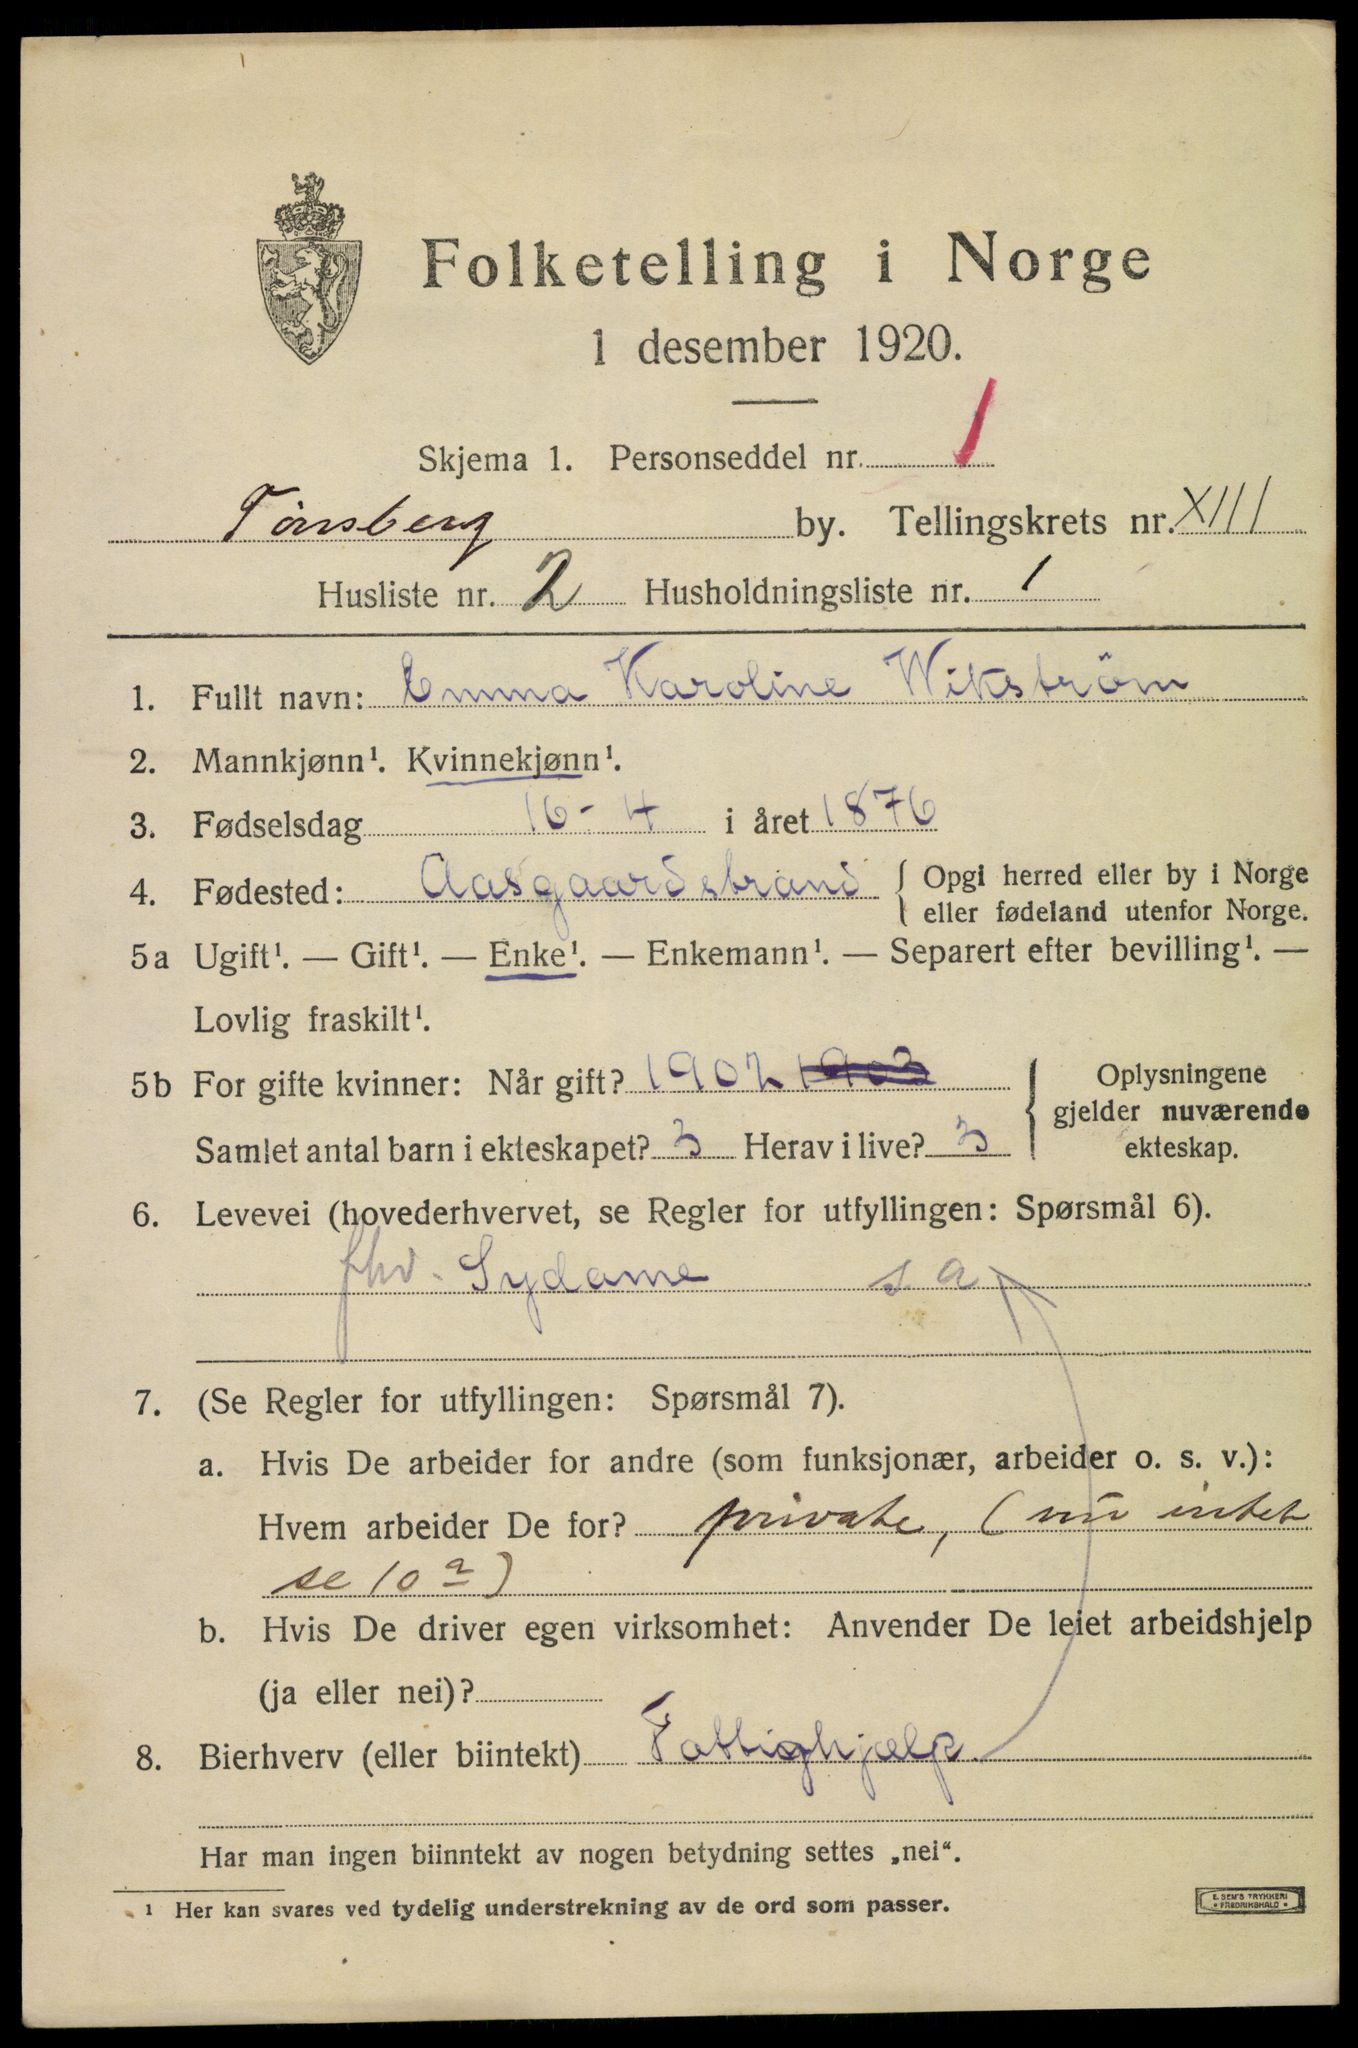 Folketelling i Norge
1 desember 1920.
Skjema 1. Personseddel nr. 1
Tönsberg by. Tellingskrets nr. XIII
Husliste nr. 2 Husholdningsliste nr. 1
1. Fullt navn: Emma Karoline Wikström
2. Mannkjønn¹. Kvinnekjønn¹.
3. Fødselsdag 16-4 i året 1876
4. Fødested: Aasgaardsstrand { Opgi herred eller by i Norge
eller fødeland utenfor Norge.
5a Ugift¹. — Gift¹. — Enke¹. — Enkemann¹. — Separert efter bevilling¹. —
Lovlig fraskilt¹.
5b For gifte kvinner: Når gift? 1902 1903 { Oplysningene
gjelder nuværende
Samlet antal barn i ekteskapet? 3 Herav i live? 3 ekteskap.
6. Levevei (hovederhvervet, se Regler for utfyllingen: Spørsmål 6).
fhv. Sydame s a
7. (Se Regler for utfyllingen: Spørsmål 7).
a. Hvis De arbeider for andre (som funksjonær, arbeider o. s. v.):
Hvem arbeider De for? private, (nu intet
se 10 a)
b. Hvis De driver egen virksomhet: Anvender De leiet arbeidshjelp
(ja eller nei)?
8. Bierhverv (eller biintekt) Fattighjælp
Har man ingen biinntekt av nogen betydning settes „nei“.
¹ Her kan svares ved tydelig understrekning av de ord som passer.
E. SEM'S TRYKKERI
• FREDRIKSHALD •